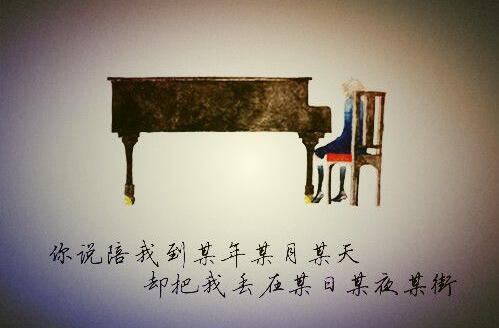 你说陪我到某年某月某天
却把我丢在某日某夜某街